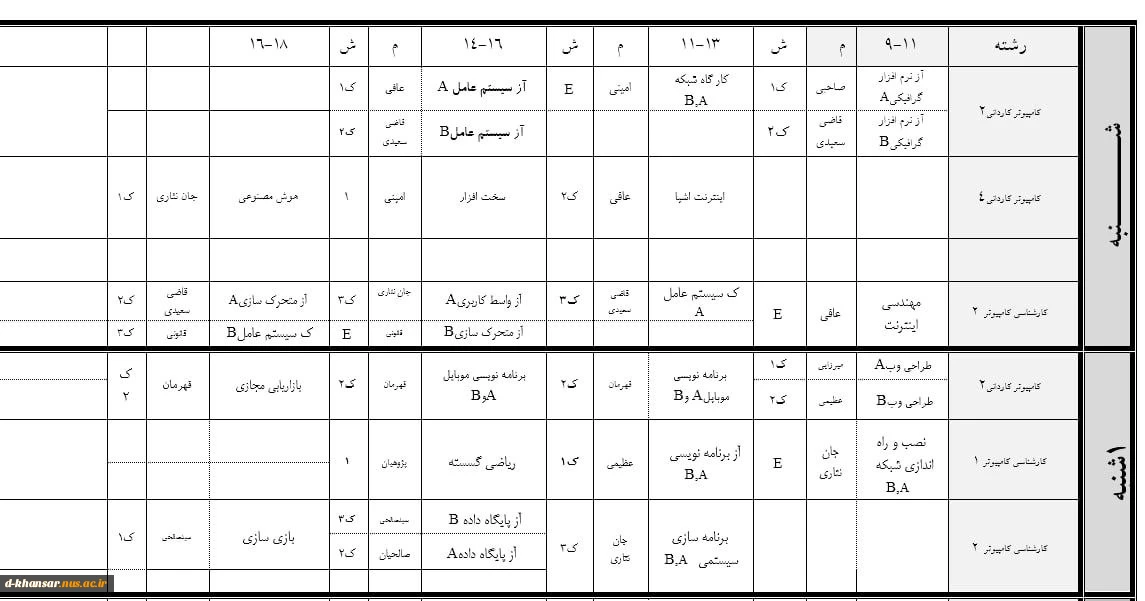 رشته ۹-۱۱ م ش ۱۱-۱۳ م ش ۱۴-۱۶ م ش ۱۶-۱۸
شـــــنبه
کامپیوتر کاردانی۲
آز نرم افزار گرافیکیA صاحبی ک۱ کارگاه شبکه B,A امینی E آز سیستم عامل A عاقی ک۱
آز نرم افزار گرافیکیB قاضی سعیدی ک۲ آز سیستم عاملB قاضی سعیدی ک۲
کامپیوتر کاردانی۴ اینترنت اشیا عاقی ک۲ سخت افزار امینی ۱ هوش مصنوعی جان نثاری ک۱
کارشناسی کامپیوتر ۲
مهندسی اینترنت عاقی E ک سیستم عامل A قاضی سعیدی ک۳ آز واسط کاربریA جان نثاری ک۳ آز متحرک سازیA قاضی سعیدی ک۲
آز متحرک سازیB قانونی E ک سیستم عاملB قانونی ک۳
۱شنبه
کامپیوتر کاردانی۲
طراحی وبA میرزایی ک۱ برنامه نویسی موبایلA وB قهرمان ک۲ برنامه نویسی موبایل AوB قهرمان ک۲ بازاریابی مجازی قهرمان ک ۲
طراحی وبB عظیمی ک۲
کارشناسی کامپیوتر ۱ نصب و راه اندازی شبکه B,A جان نثاری E آز برنامه نویسی B,A عظیمی ک۱ ریاضی گسسته پژوهیان ۱
کارشناسی کامپیوتر ۲
برنامه سازی سیستمی B,A جان نثاری ک۳ آز پایگاه داده B سینصالحی ک۳ بازی سازی سینصالحی ک۱
آز پایگاه دادهA صالحیان ک۲
d-khansar.nus.ac.ir